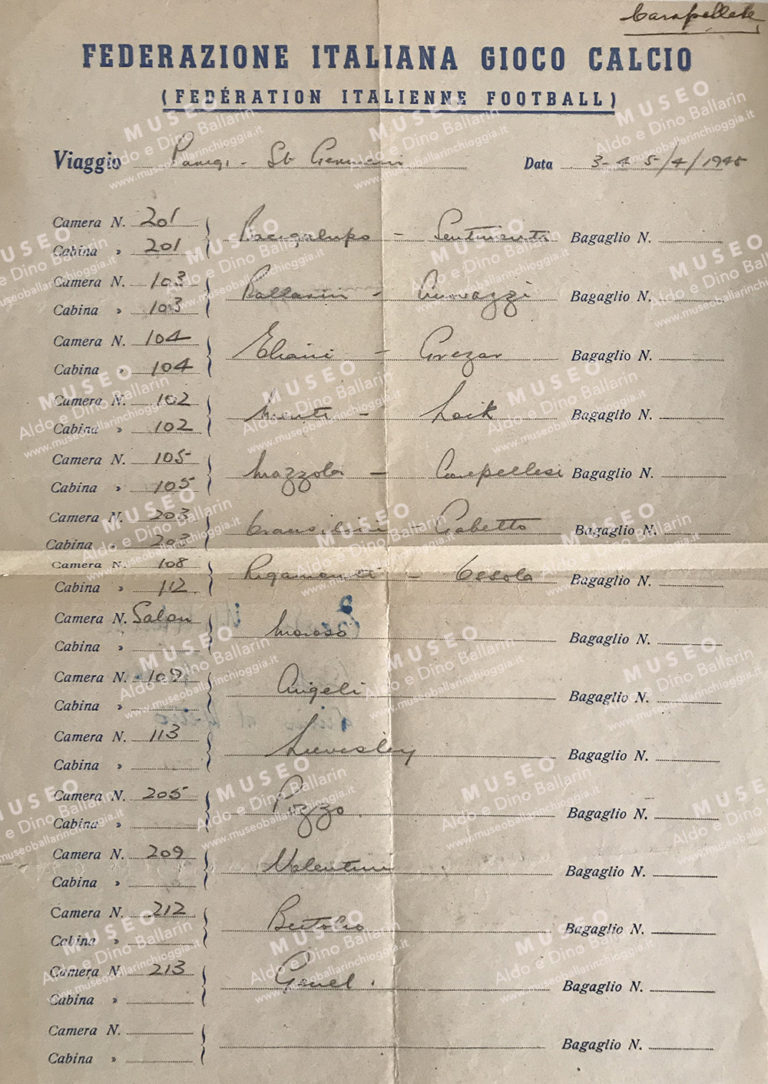 Carapellese
FEDERAZIONE ITALIANA GIOCO CALCIO
(FEDÉRATION ITALIENNE FOOTBALL)
Viaggio Parigi - St Germain Data 3-4-5/4/1948
Camera N. 201
Cabina » 201
Bacigalupo - Sentimenti Bagaglio N.
Camera N. 103
Cabina » 103
Ballarin - Giovazzi Bagaglio N.
Camera N. 104
Cabina » 104
Eliani - Grezar Bagaglio N.
Camera N. 102
Cabina » 102
Menti - Loik Bagaglio N.
Camera N. 105
Cabina » 105
Mazzola - Carapellesi Bagaglio N.
Camera N. 203
Cabina » 203
Gabetto Bagaglio N.
Camera N. 108
Cabina » 112
Rigamonti - Ossola Bagaglio N.
Camera N. Salon
Cabina »
Maroso Bagaglio N.
Camera N. 109
Cabina »
Angeli Bagaglio N.
Camera N. 113
Cabina »
Lievesley Bagaglio N.
Camera N. 205
Cabina »
Pozzo Bagaglio N.
Camera N. 209
Cabina »
Valentini Bagaglio N.
Camera N. 212
Cabina »
Bertolio Bagaglio N.
Camera N. 213
Cabina »
Bagaglio N.
Camera N.
Cabina »
Bagaglio N.
MUSEO
Aldo e Dino Ballarin
www.museoballarinchioggia.it